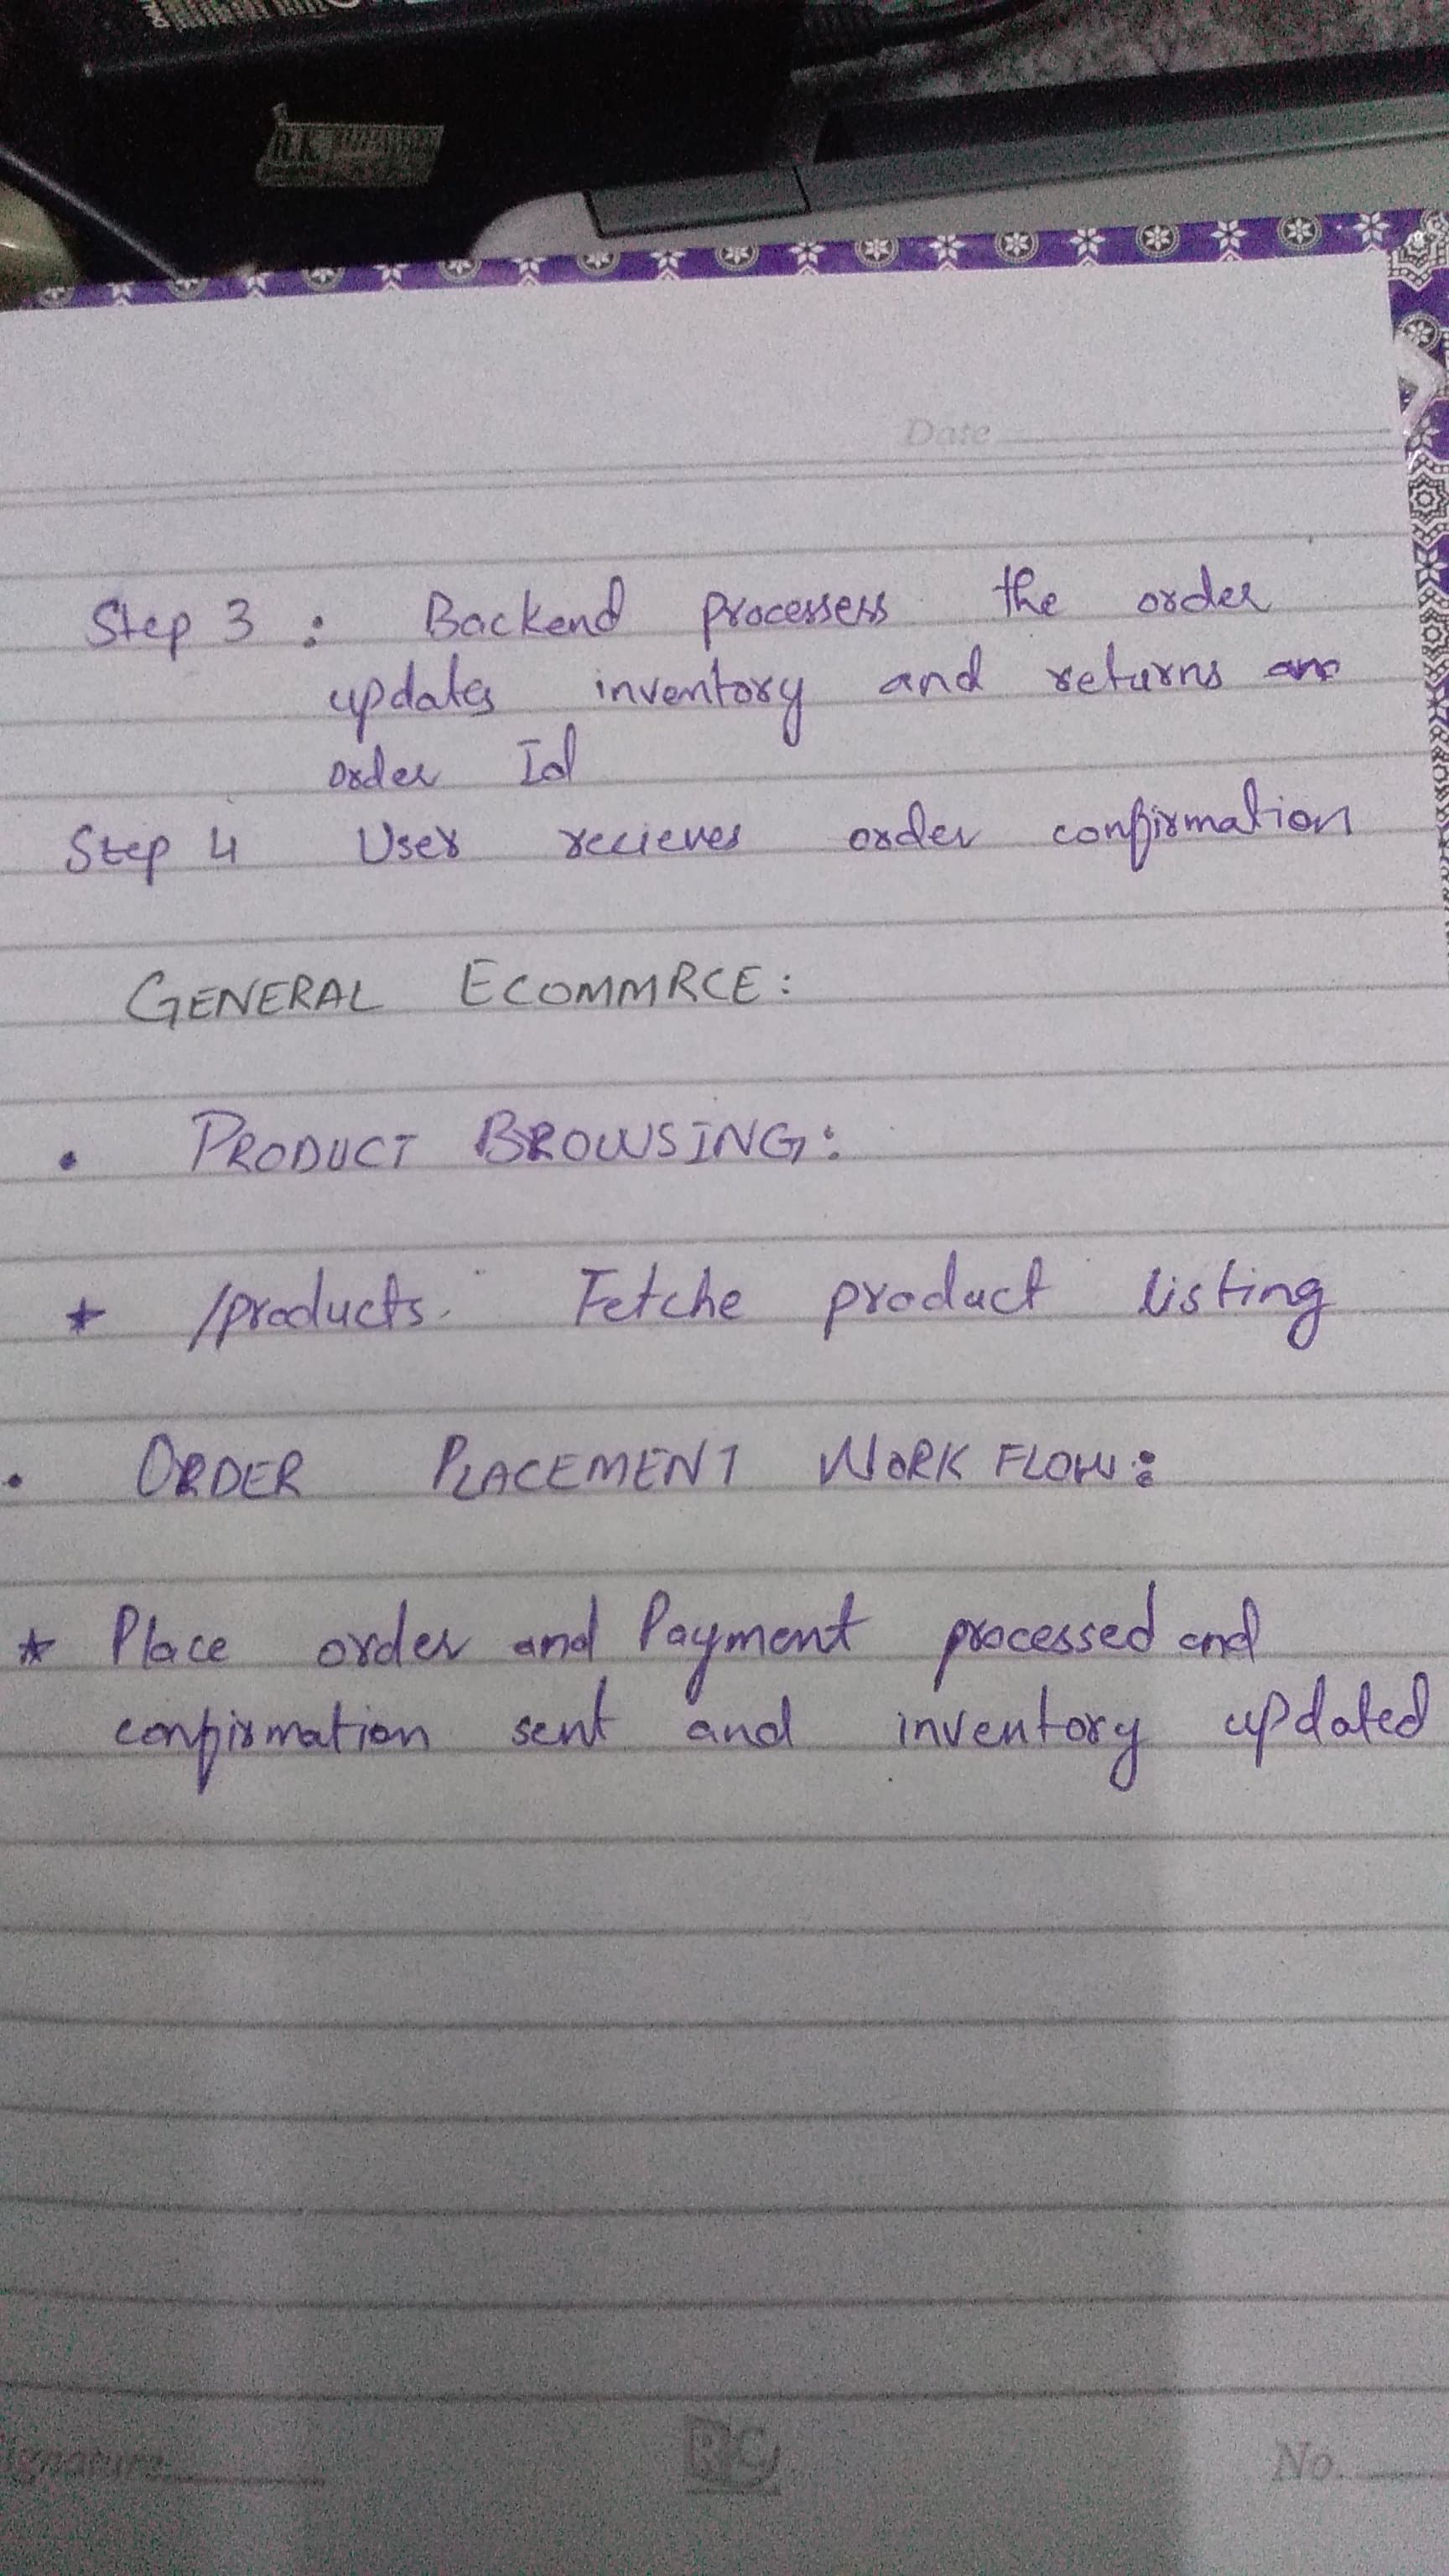 RK
Date
Step 3 : Backend processess the order
updates inventory and returns an
order Id
Step 4 User recieves order confirmation
GENERAL ECOMMRCE:
• PRODUCT BROWSING:
* /products. Fetche product listing
• ORDER PLACEMENT WORK FLOW:
* Place order and Payment processed and
confirmation sent and inventory updated
ignature
RC
No.